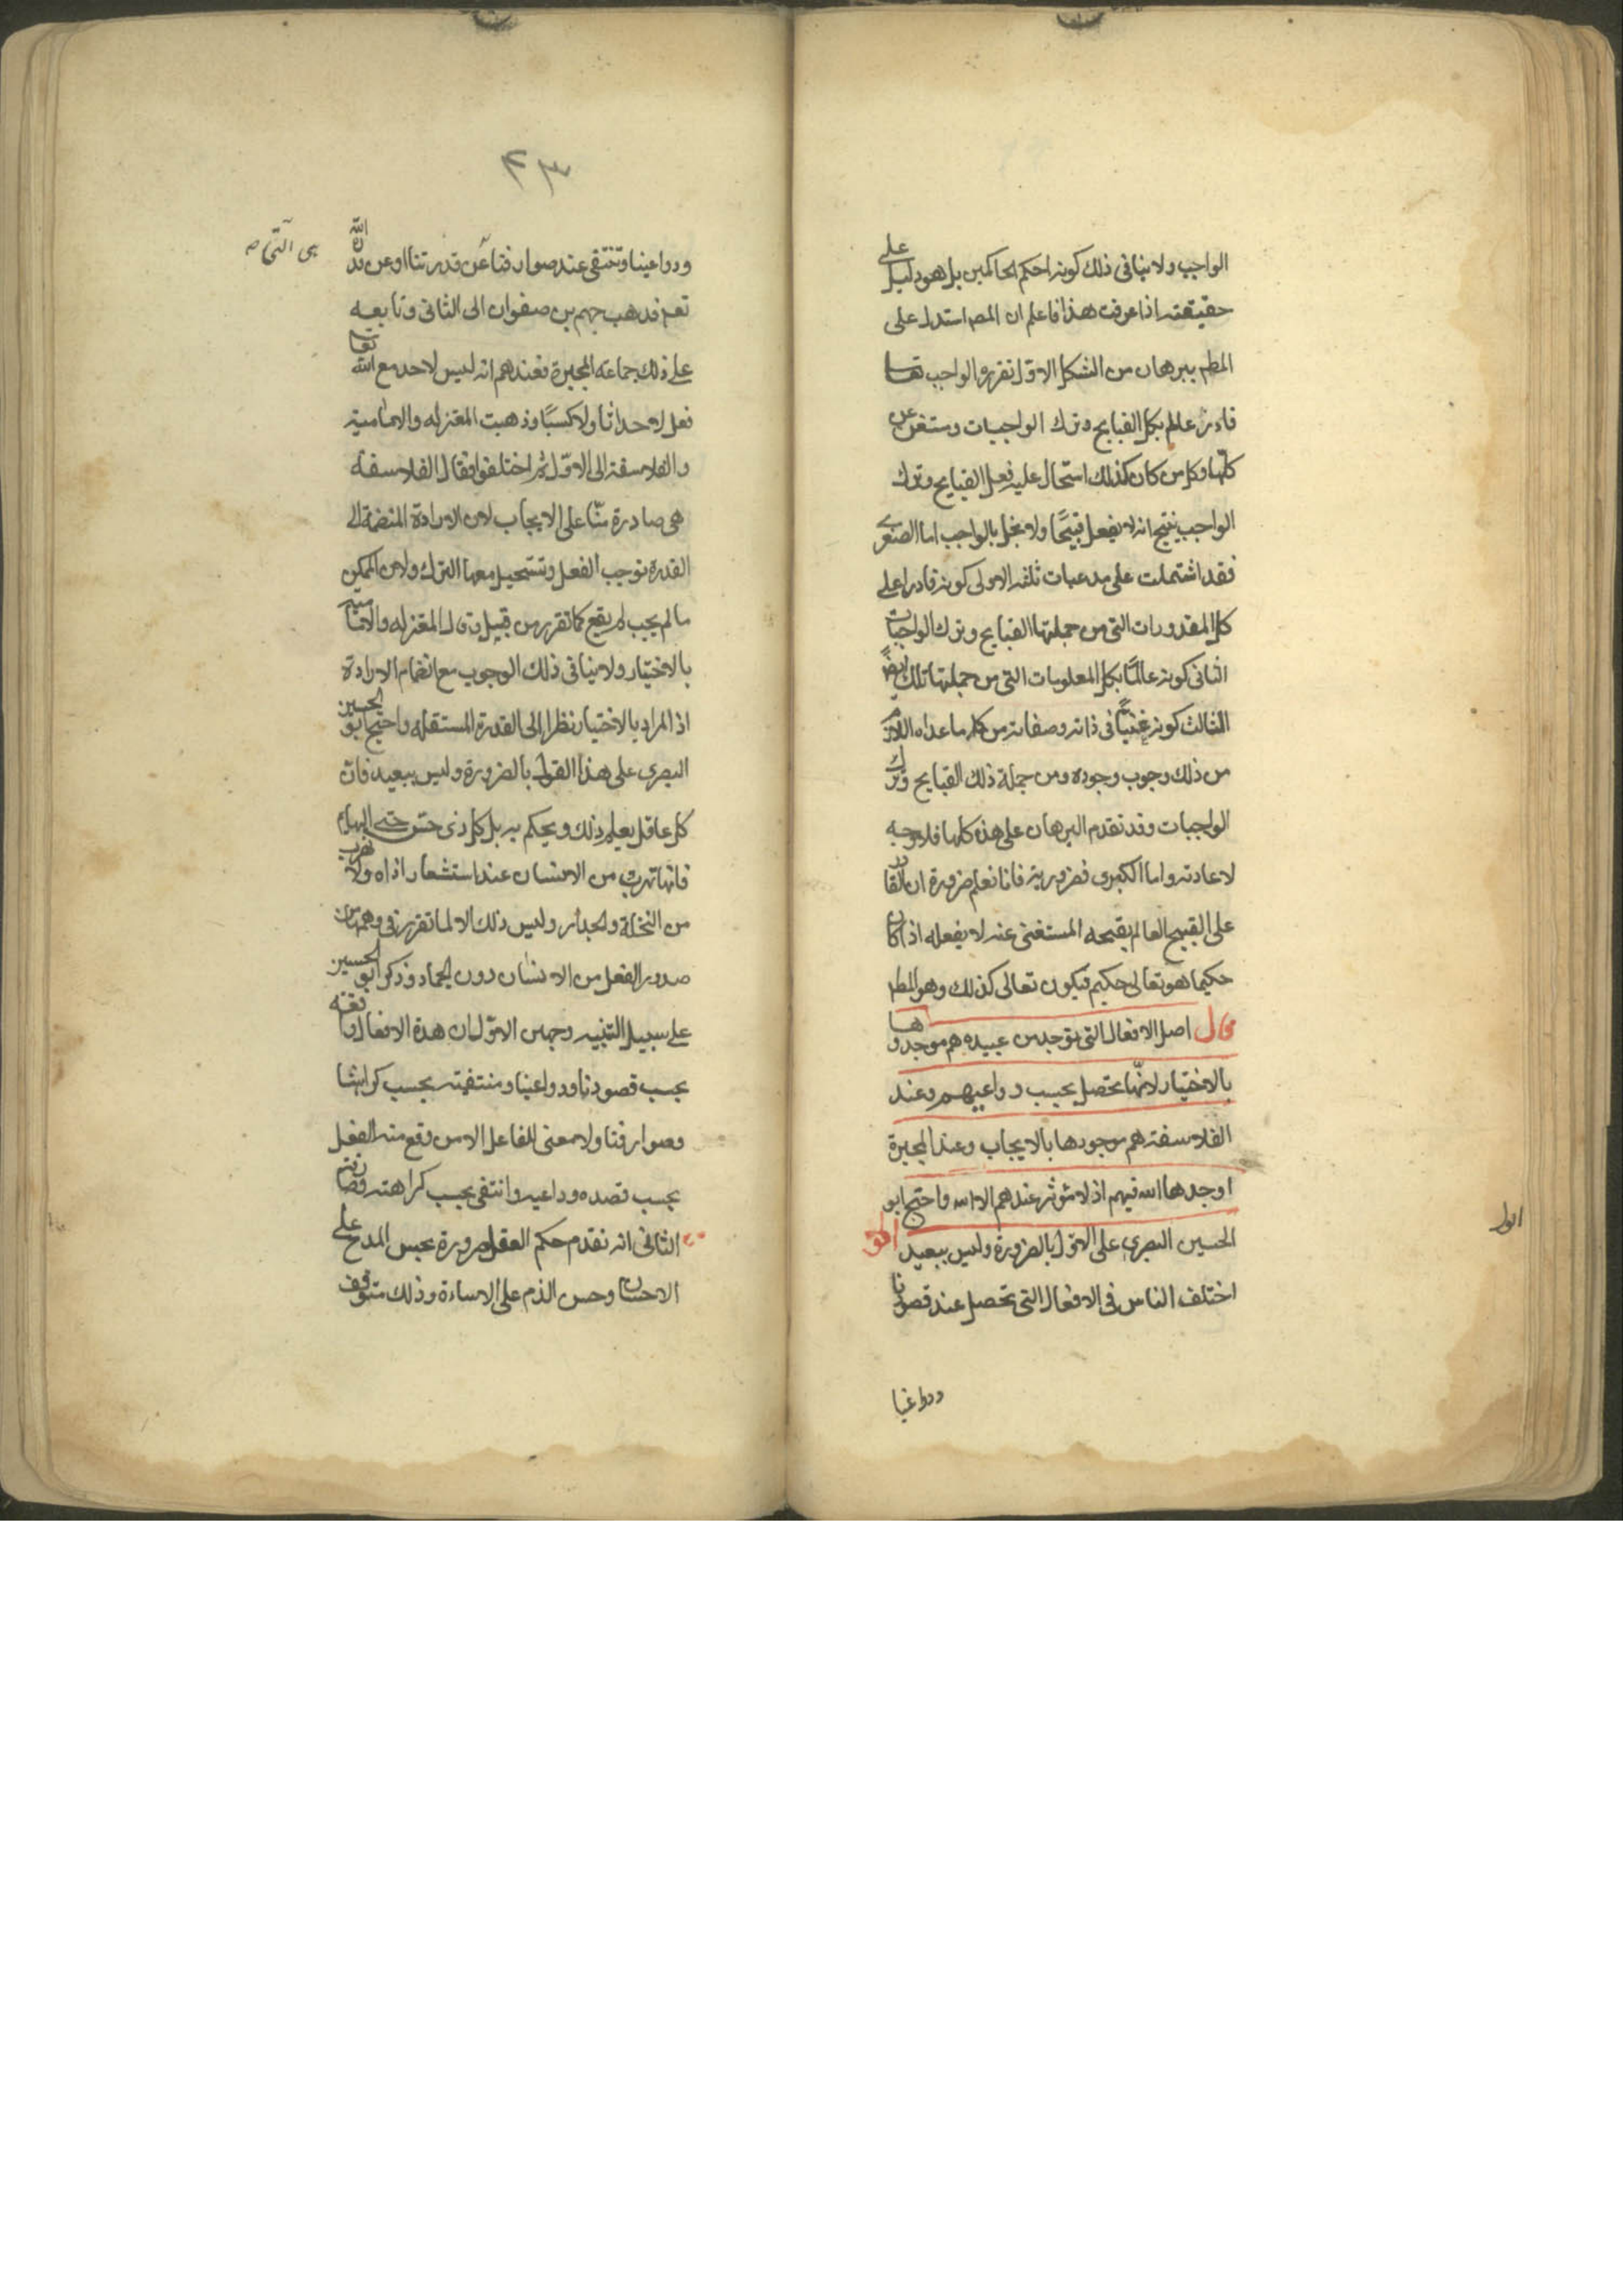 الواجب ولا ينافى ذلك كونه احكم الحاكمين بل هو دليل على
حقيقته اذا عرفت هذا فاعلم ان المصـ استدل على
المطـ ببرهان من الشكل الاول تقريره الواجب تعالى
قادر عالم بكل القبايح وترك الواجبات ومستغن عن
كلها وكل من كان كذلك استحال عليه فعل القبايح وترك
الواجب ينتج انه لا يفعل قبيحًا ولا يخل بالواجب اما الصغرى
فقد اشتملت على مدعيات ثلثه الاولى كونه قادرا على
كل المقدورات التى من جملتها القبايح وترك الواجبات
الثانى كونه عالمًا بكل المعلومات التى من جملتها تلك ايضًا
الثالث كونه غنيًّا فى ذاته وصفاته من كل ما عداه اللازم
من ذلك وجوب وجوده ومن جملة ذلك القبايح وترك
الواجبات وقد تقدم البرهان على هذه كلها فلا وجه
لاعادته واما الكبرى فضرورية فانا نعلم ضرورة ان القادر
على القبيح العالم بقبحه المستغنى عنه لا يفعله اذا كان
حكيما هو تعالى حكيم فيكون تعالى كذلك وهو المطـ
قال اصل الافعال التى توجد من عبيده هم موجدوها
بالاختيار لانّها تحصل بحسب دواعيهم وعند
الفلاسفه هم موجودها بالايجاب وعند المجبرة
اوجدها الله فيهم اذ لا مؤثر عندهم الا الله واحتج ابو
الحسين البصرى على الاوّل بالضرورة وليس ببعيد اقول
اختلف الناس فى الافعال التى تحصل عند قصودنا
ودواعينا
اقول
٤٣
ودواعينا وتنتفى عند صوارفنا عن قدرتنا او عن قدرة الله
تعـ فذهب جهم بن صفوان الى الثانى وتابعه
على ذلك جماعه المجبرة فعندهم انه ليس لاحد مع الله تعالى
فعل لا احداثا ولا كسبًا وذهبت المعتزله والاماميه
والفلاسفة الى الاوّل ثم اختلفوا فقال الفلاسفه
هى صادرة منّا على الايجاب لان الارادة المنضمة الى
القدرة توجب الفعل وتستحيل معها الترك ولان الممكن
ما لم يجب لم يقع كما تقرر من قبيل وقال المعتزله والاماميه
بالاختيار ولا ينافى ذلك الوجوب مع انضمام الارادة
اذ المراد بالاختيار نظرا الى القدرة المستقله واحتج ابو الحسين
البصرى على هذا القول بالضرورة وليس ببعيد فان
كل عاقل يعلم ذلك ويحكم به بل كل ذى حسّ حتى البهائم
فانها تهرب من الانسان عند استشعار اذاه ولا تهرب
من النخلة والجدار وليس ذلك الا لما تقرر فى وهمها من
صدور الفعل من الانسان دون الجماد وذكر ابو الحسين
على سبيل التنبيه وجهين الاوّل ان هذه الافعال واقعه
بحسب قصودنا ودواعينا ومنتفيته بحسب كراهتنا
وصوارفنا ولا معنى للفاعل الا من وقع منه الفعل
بحسب قصده وداعيه وانتفى بحسب كراهته وصارفته
الثانى انه تقدم حكم العقل ضرورة بحسن المدح على
الاحسان وحسن الذم على الاساءة وذلك متوقف